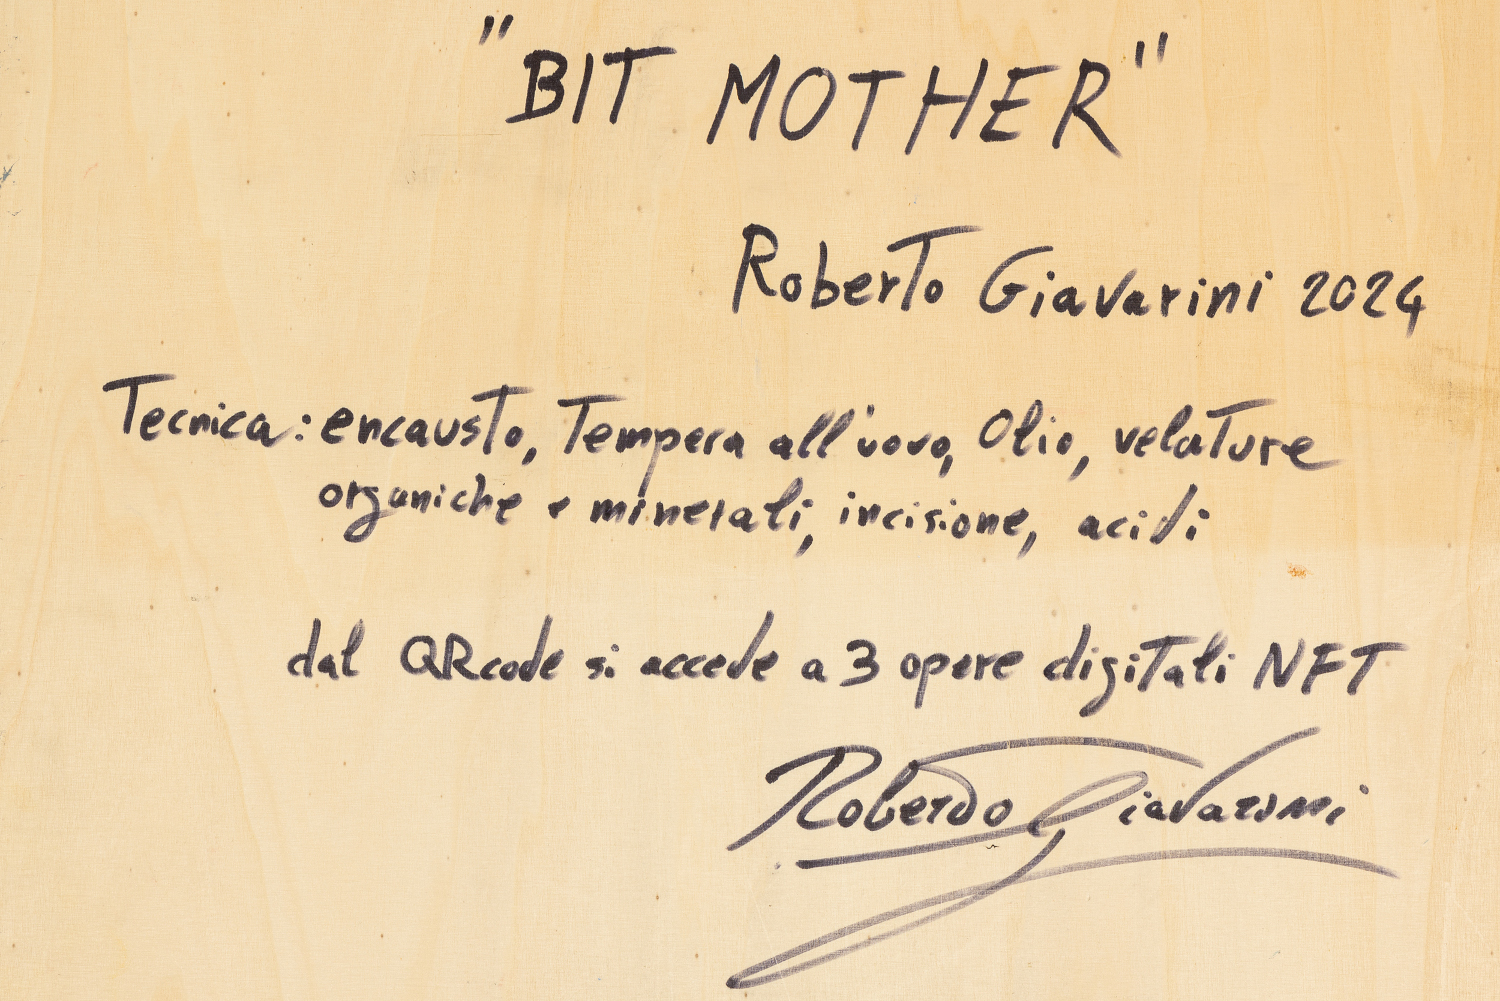 "BIT MOTHER"
Roberto Giavarini 2024
Tecnica: encausto, Tempera all'uovo, Olio, velature
organiche e minerali, incisione, acidi
dal QRcode si accede a 3 opere digitali NFT
Roberto Giavarini